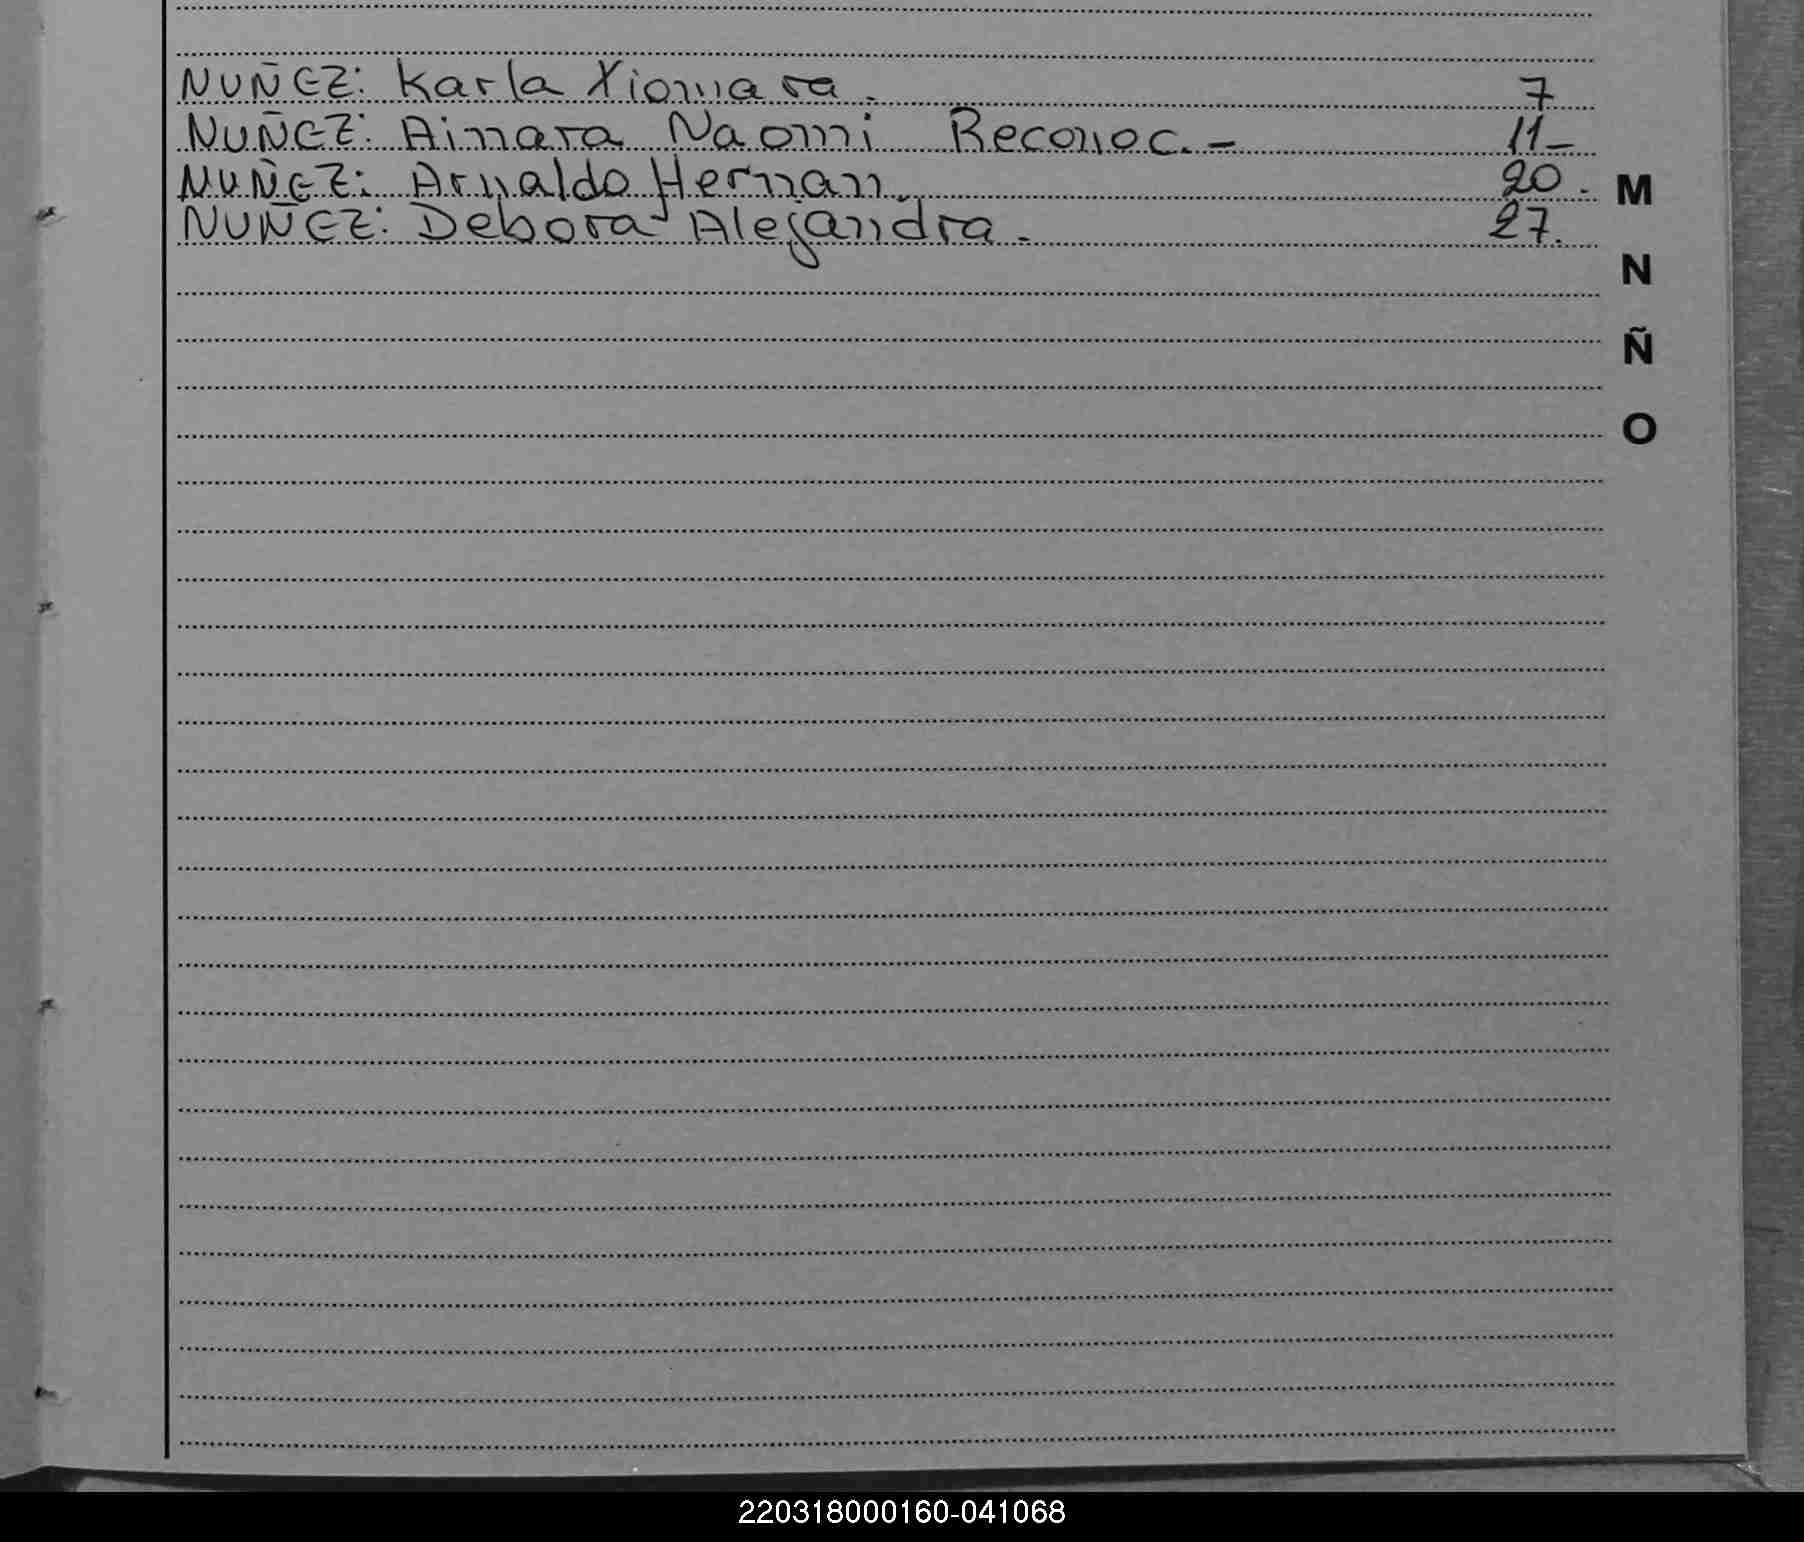 NUÑEZ: Karla Xiomara. 7
NUÑEZ: Ainara Naomi Reconoc.- 11-
NUÑEZ: Arnaldo Hernan. 20.
NUÑEZ: Debora Alejandra. 27.
M
N
Ñ
O
220318000160-041068